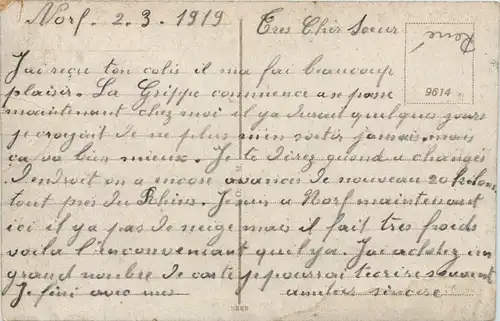 Norf. 2.3.1919
Tres Cher Soeur
René
9614
Jai reçu ton colis il ma fai beaucoup
plaisir. La Grippe commence a se passe
maintenant chez moi il ya durait quelques jours
je croyait de ne plus men sortir jamais. mais
ça va bien mieux. Je te direz quond a changés
Dendroit on a encore avancés de nouveau 20 kilom
tout pres du Rhin. Jesuis a Norf maintenant
ici il ya pas de neige mais il fait tres froids
voila l'inconveniant quil ya. Jai achetez un
grand nombre de carte p pourrai tecrire souvent
Je fini avec mes amitiés sincere